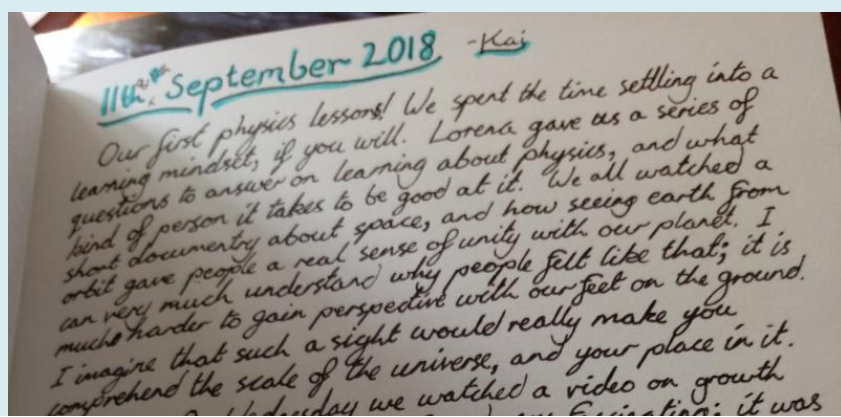 11th September 2018 -Kai
Our first physics lessons! We spent the time settling into a
learning mindset, if you will. Lorena gave us a series of
questions to answer on learning about physics, and what
kind of person it takes to be good at it. We all watched a
short documentry about space, and how seeing earth from
orbit gave people a real sense of unity with our planet. I
can very much understand why people felt like that; it is
much harder to gain perspective with our feet on the ground.
I imagine that such a sight would really make you
comprehend the scale of the universe, and your place in it.
we watched a video on growth
it was